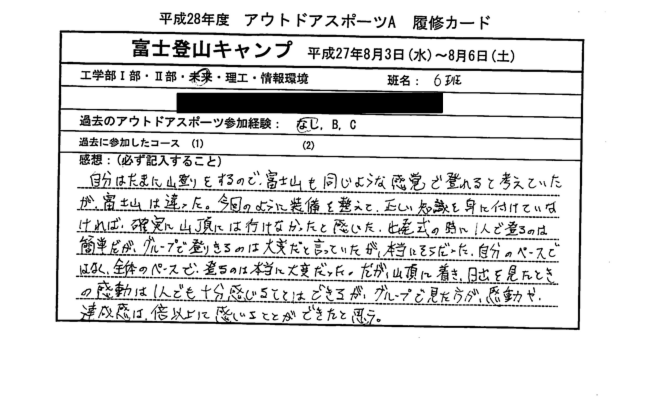 平成28年度 アウトドアスポーツA 履修カード
富士登山キャンプ 平成27年8月3日(水)~8月6日(土)
工学部Ⅰ部・Ⅱ部・未来・理工・情報環境 班名: 6班
過去のアウトドアスポーツ参加経験: なし, B, C
過去に参加したコース (1) (2)
感想:(必ず記入すること)
自分はたまに山登りをするので、富士山も同じような感覚で登れると考えていた
が、富士山は違った。今回のように装備を整えて、正しい知識を身に付けていな
ければ、確実に山頂には行けなかったと感じた。出発式の時に1人で登るのは
簡単だが、グループで登りきるのは大変だと言っていたが、本当にそうだった。自分のペースで
はなく、全体のペースで、登るのは本当に大変だった。だが、山頂に着き、日出を見たとき
の感動は1人でも十分感じることはできるが、グループで見た方が、感動や、
達成感は、倍以上に感じることができたと思う。